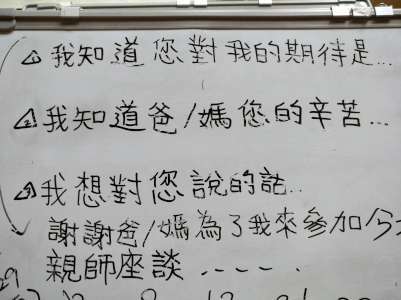 我知道您對我的期待是...
我知道爸/媽您的辛苦...
我想對您說的話...
謝謝爸/媽為了我來參加今
親師座談.....